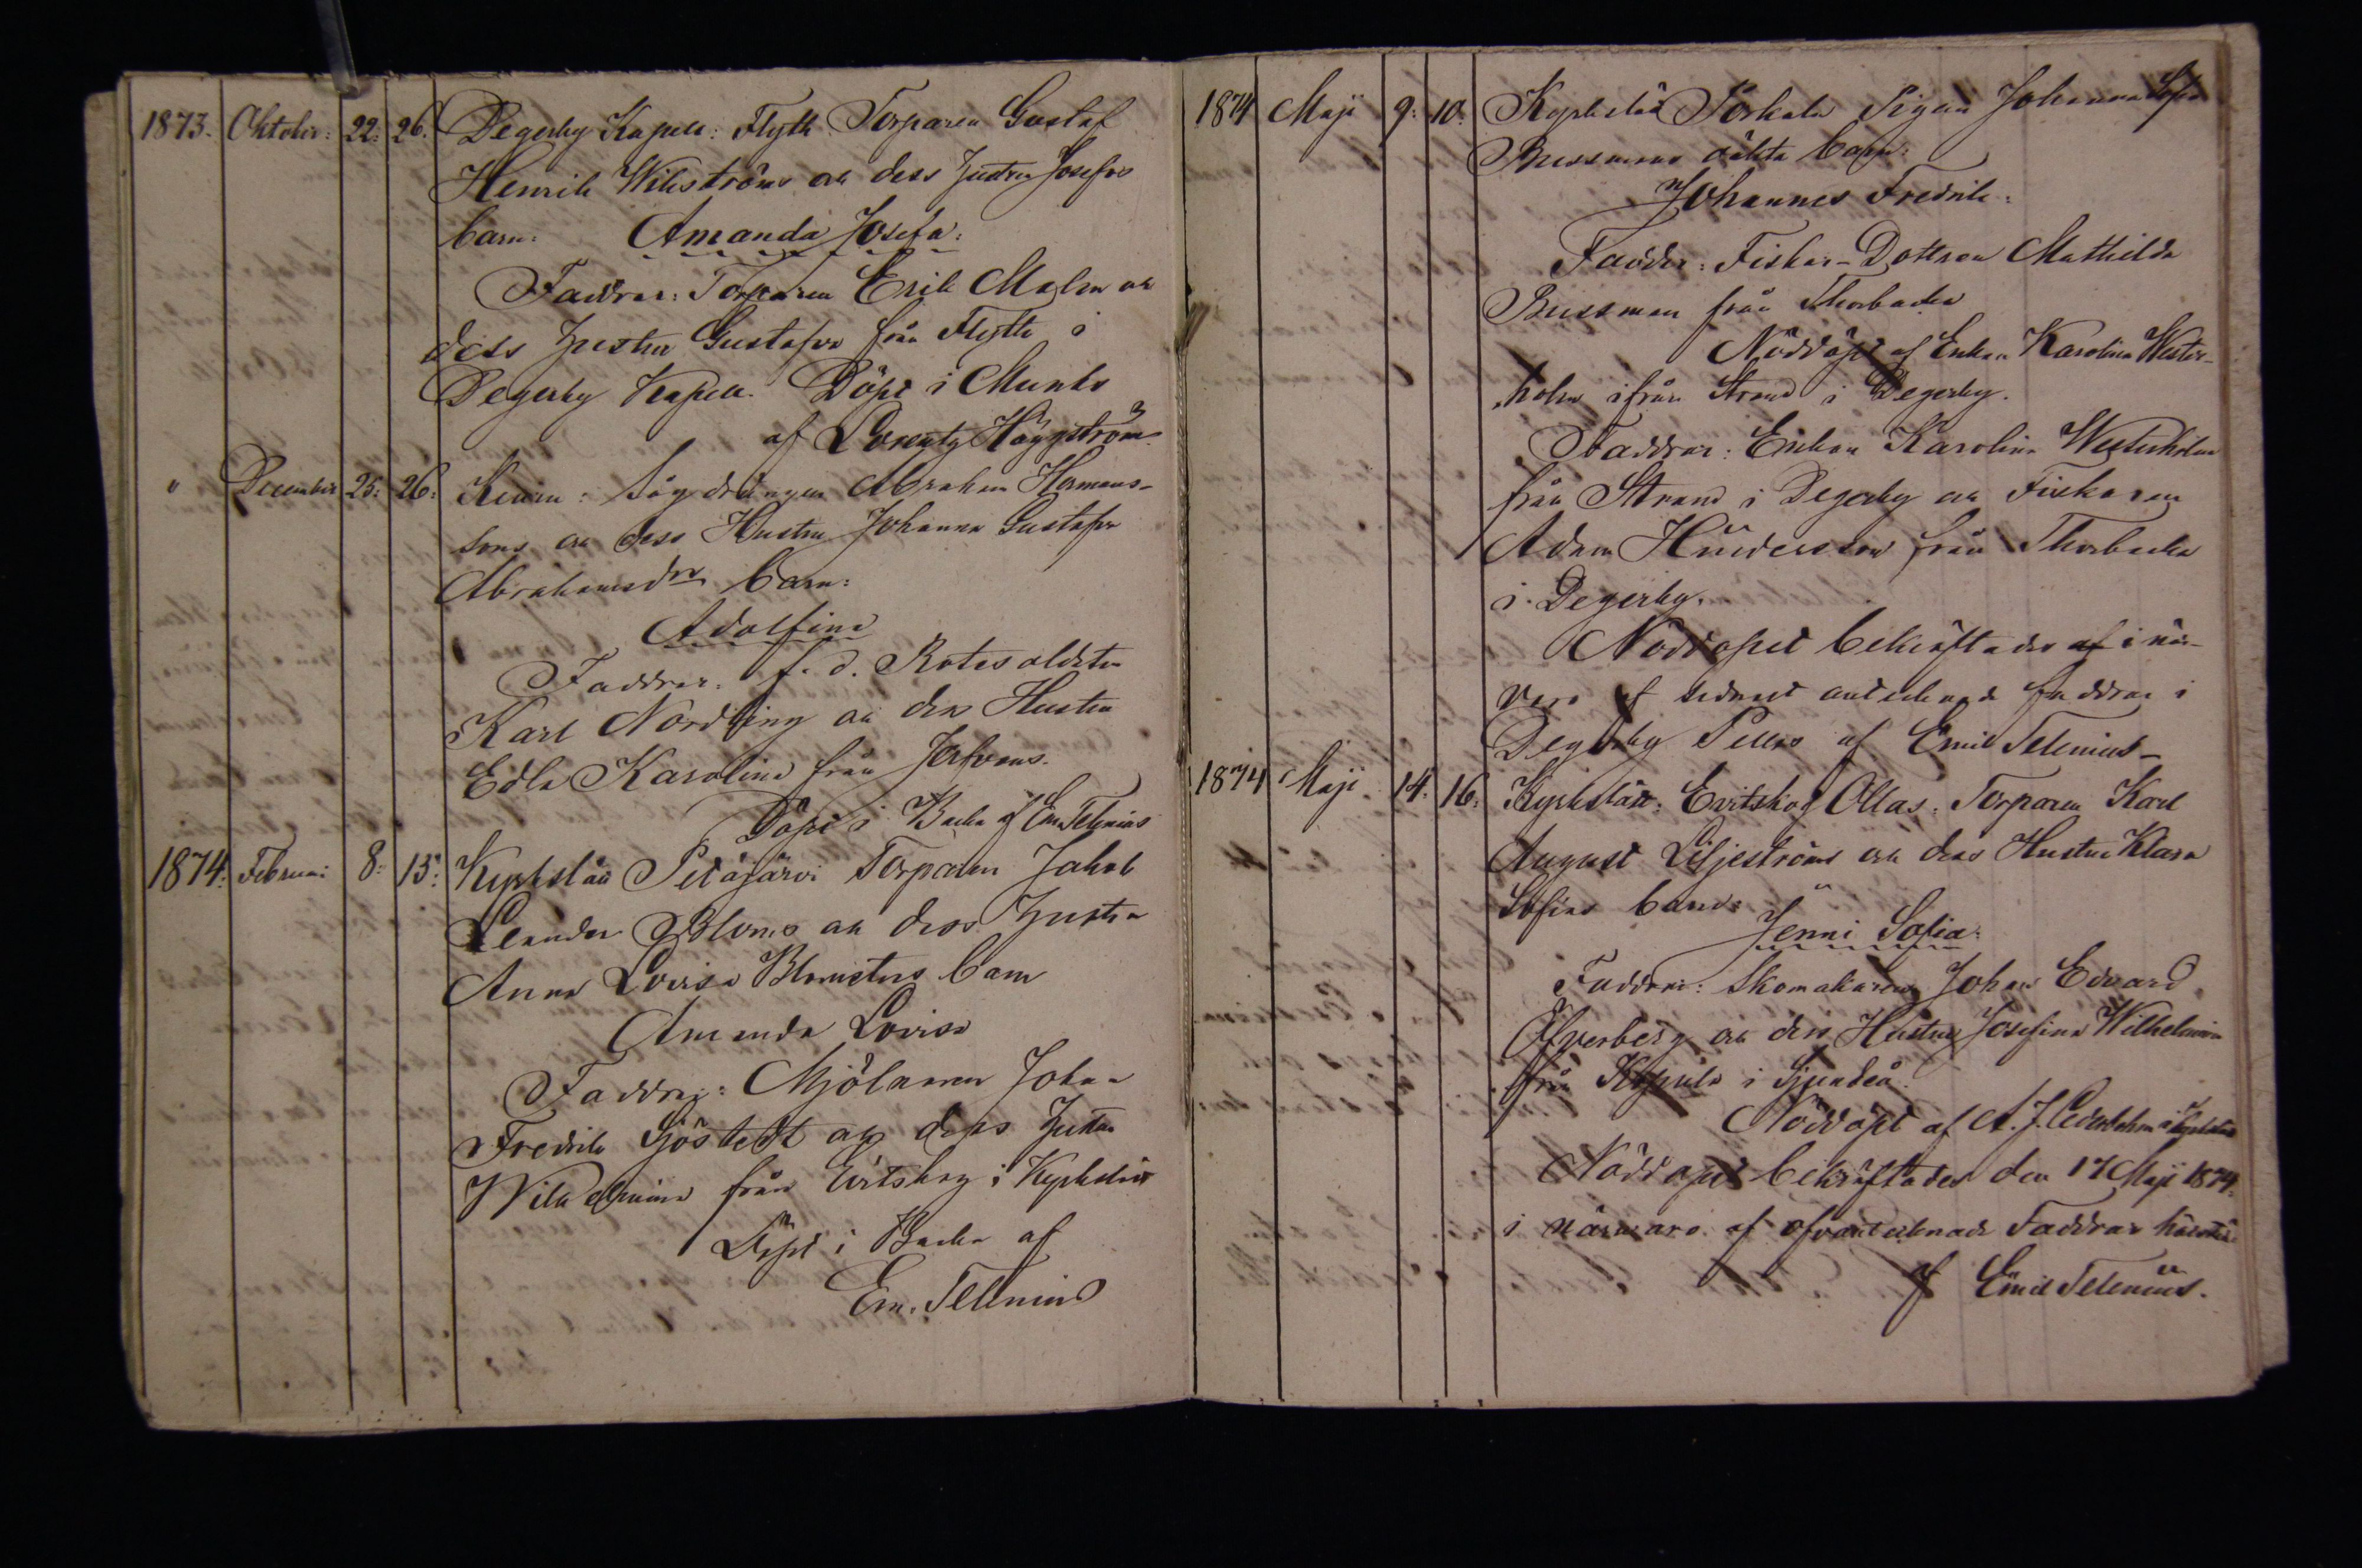 1873. Oktober: 22: 26. Degerby Kapell: Flyth Torparen Gustaf
Henrik Wikströms och dess Hustru Josefas
barn: Amanda Josefa:
Faddrar: Torparen Erik Malm och
dess Hustru Gustafva från Flyth i
Degerby Kapell. Döpt i Munks
af Lorentz Häggström.
" December 25: 26: Sågdrängen Abraham Hermans-
sons och dess Hustru Johanna Gustafva
Abrahamsdr barn:
Adolfina
Faddrar: f. d. Rotesoldaten
Karl Nordling och dess Hustru
Edla Karolina från
Döpt i Backa af Em. Telenius
1874. Februari 8: 15: Kyrkslätt Petäjärvi Torparen Jakob
Leander Bloms och dess Hustru
Anna Lovisa barn
Amanda Lovisa
Faddrar: Mjölnaren Johan
Fredrik Sjöstedt och dess Hustru
Wilhelmina från Evitskog i Kyrkslätt
Döpt i Backa af
Em. Telenius
1874 Maji 9: 10. Kyrkslätt Porkala Pigan Johanna Sofia
Bussmans oäkta barn:
Johannes Fredrik:
Fadder: Fiskar-Dottren Mathilda
Bussman från Thorbacka
Nöddöpt af Enkan Karolina Wester-
holm ifrån Strand i Degerby.
Faddrar: Enkan Karolina Westerholm
från Strand i Degerby och Fiskaren
Adam från Thorbacka
i Degerby.
Nöddopet bekräftades af i när-
varo af sidnast antecknade faddrar i
Degerby Pellas af Emil Telenius-
1874 Maji 14. 16: Kyrkslätt: Evitskog Ollas: Torparen Karl
August Liljeströms och dess Hustru Klara
Sofias barn:
Jenni Sofia:
Faddrar: Skomakaren Johan Edvard
Öfverberg och dess Hustru Josefina Wilhelmina
från i Sjundeå.
Nöddöpt af A. J. i Kyrkslätt
Nöddopet bekräftades den 17 Maji 1874.
i närvaro af ofvantecknade Faddrar
af Emil Telenius.